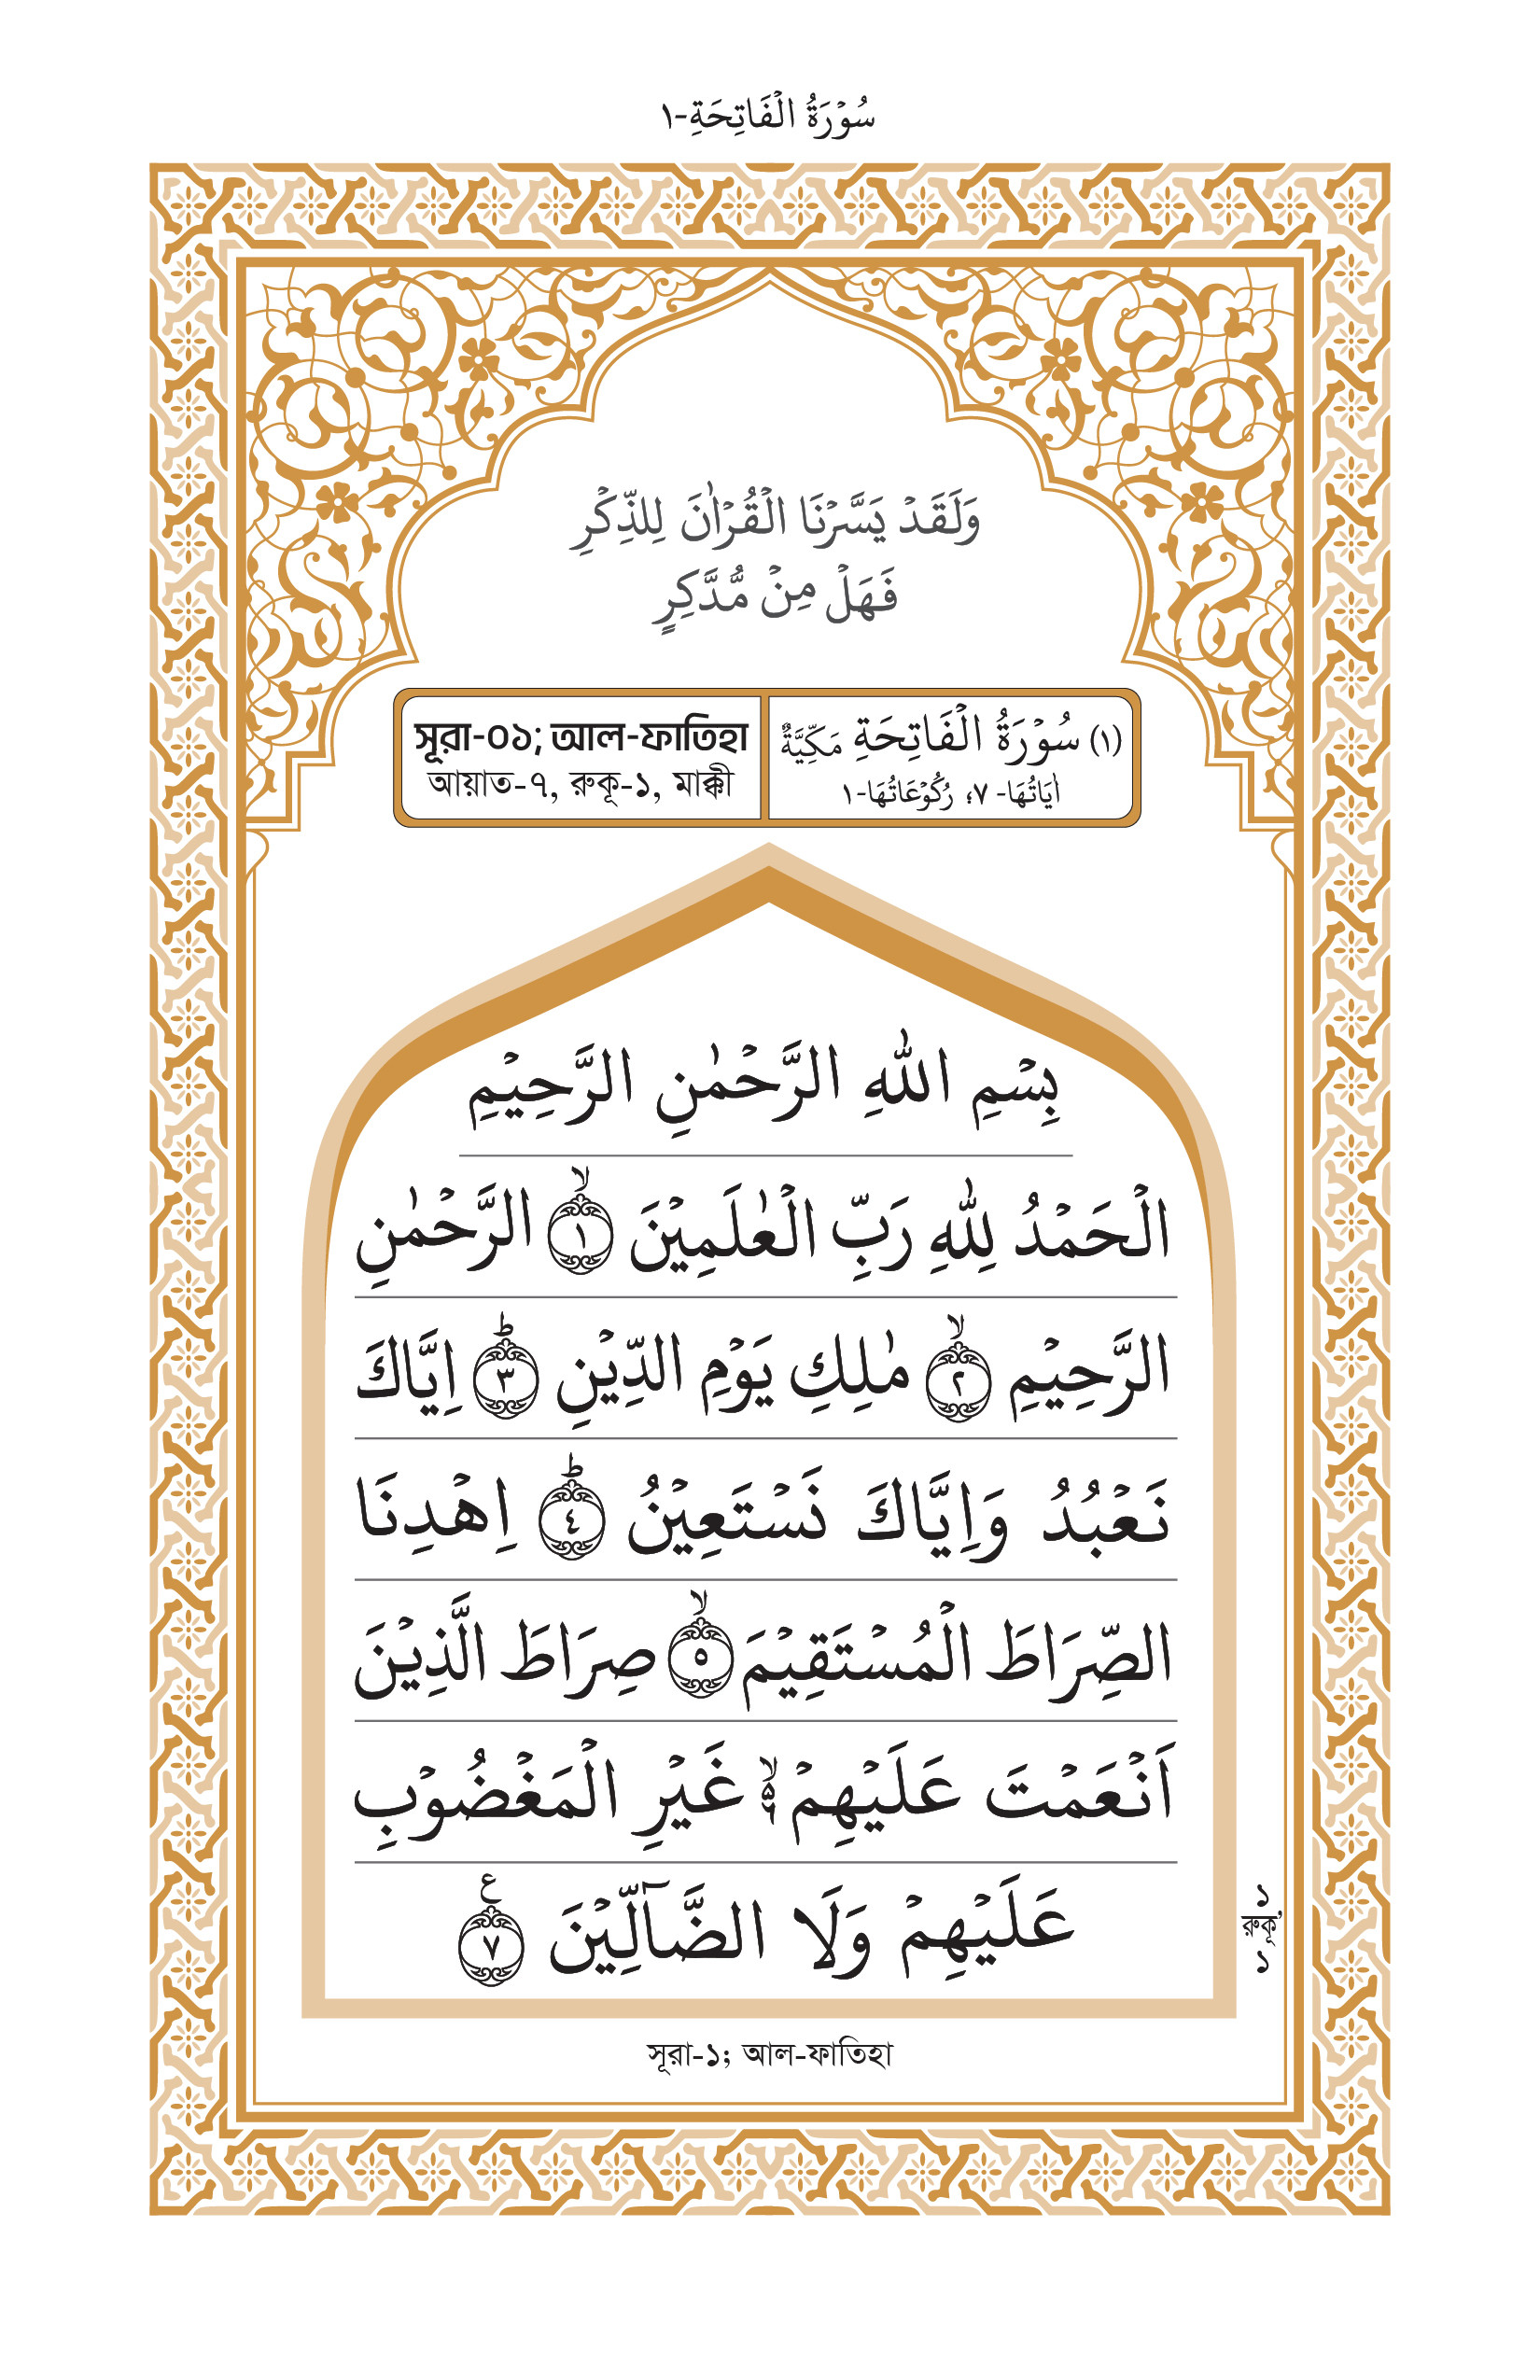 سُوْرَةُ الْفَاتِحَةِ-١
وَلَقَدْ يَسَّرْنَا الْقُرْاٰنَ لِلذِّكْرِ
فَهَلْ مِنْ مُّدَّكِرٍ
(١) سُوْرَةُ الْفَاتِحَةِ مَكِّيَّةٌ
اٰيَاتُهَا- ٧؛ رُكُوْعَاتُهَا-١
সূরা-০১; আল-ফাতিহা
আয়াত-৭, রুকূ-১, মাক্কী
بِسْمِ اللّٰهِ الرَّحْمٰنِ الرَّحِيْمِ
الْحَمْدُ لِلّٰهِ رَبِّ الْعٰلَمِيْنَ ۙ﴿١﴾ الرَّحْمٰنِ
الرَّحِيْمِ ۙ﴿٢﴾ مٰلِكِ يَوْمِ الدِّيْنِ ؕ﴿٣﴾ اِيَّاكَ
نَعْبُدُ وَاِيَّاكَ نَسْتَعِيْنُ ؕ﴿٤﴾ اِهْدِنَا
الصِّرَاطَ الْمُسْتَقِيْمَ ۙ﴿٥﴾ صِرَاطَ الَّذِيْنَ
اَنْعَمْتَ عَلَيْهِمْ ۙ۬ۦ غَيْرِ الْمَغْضُوْبِ
عَلَيْهِمْ وَلَا الضَّآلِّيْنَ ﴿٧﴾ ع
১
রুকূ
১
সূরা-১; আল-ফাতিহা